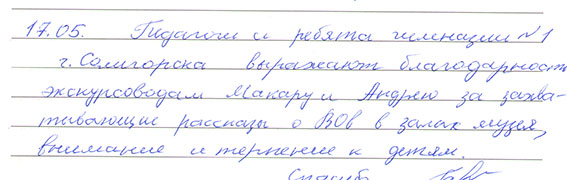 17.05. Педагоги и ребята гимназии №1
г. Солигорска выражают благодарность
экскурсоводам Макару и Андрею за захва-
тывающие рассказы о ВОв в залах музея,
внимание и терпение к детям.
Спасибо